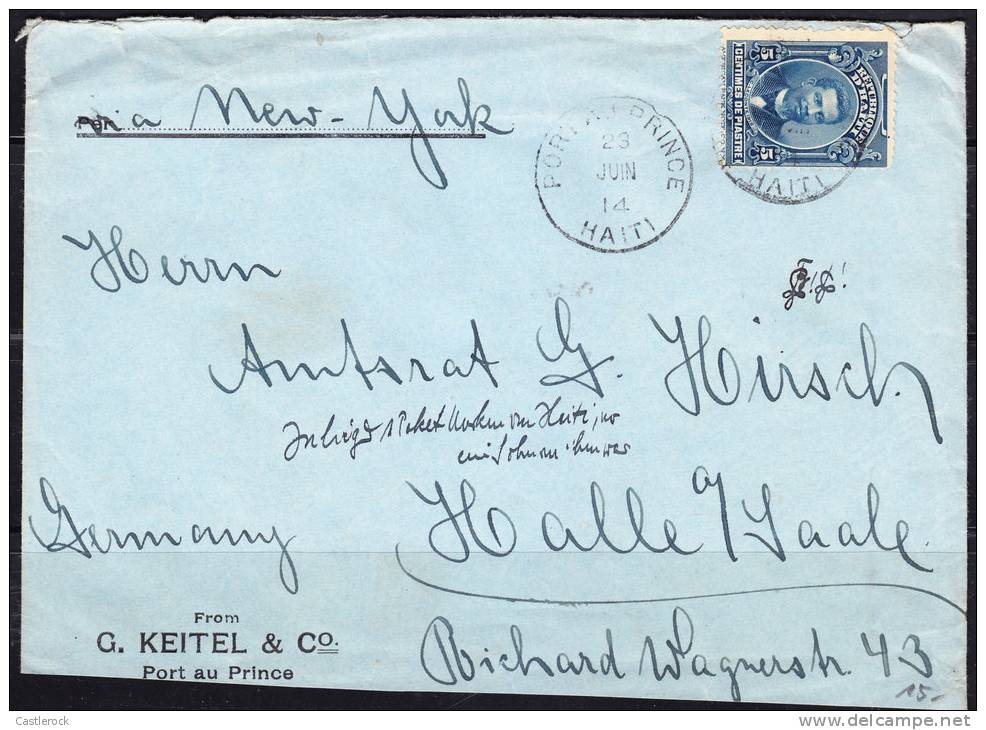 via New-York
PORT AU PRINCE
23
JUIN
14
HAITI
REPUBLIQUE
D'HAITI
5
CENTIMES DE PIASTRE
5
HAITI
Herrn
Amtsrat G. Hirsch
Haiti,
Halle a/Saale.
Germany
From
G. KEITEL & Co.
Port au Prince
Richard Wagnerstr. 43
15-
Castlerock
www.delcampe.net